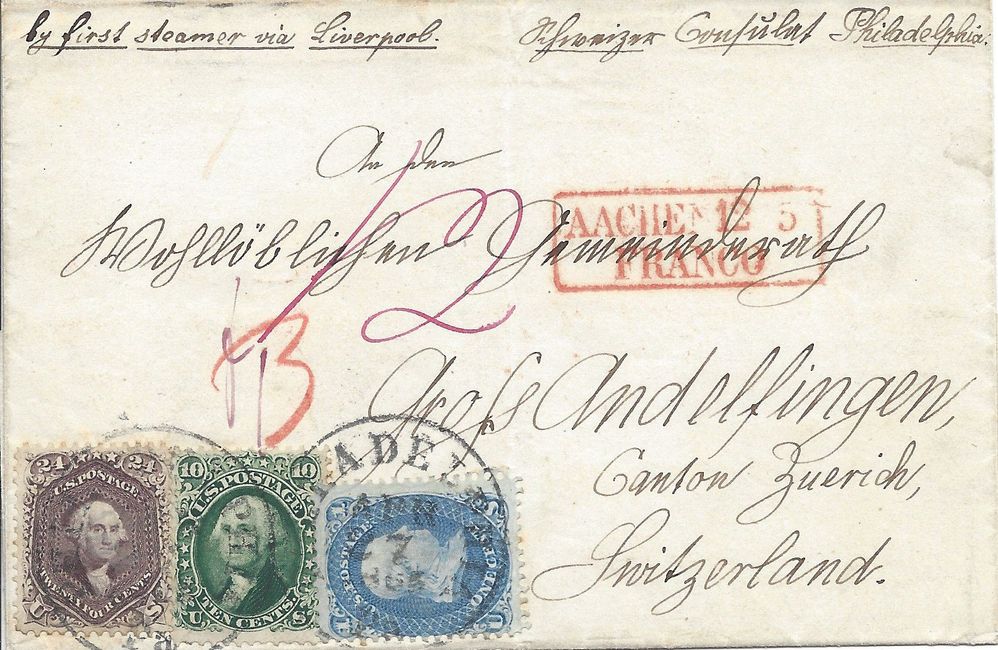 by first steamer via Liverpool.
Schweizer Consulat Philadelphia.
An den
Wohllöblichen Gemeinderath
AACHEN 12 5
FRANCO
1/2
3
Gross Andelfingen,
Canton Zuerich,
Switzerland.
24 24
U.S. POSTAGE
TWENTY FOUR CENTS.
U S
10 10
U.S. POSTAGE
TEN CENTS.
U S
U.S. POSTAGE
ONE CENT
ADEL
7
Pa